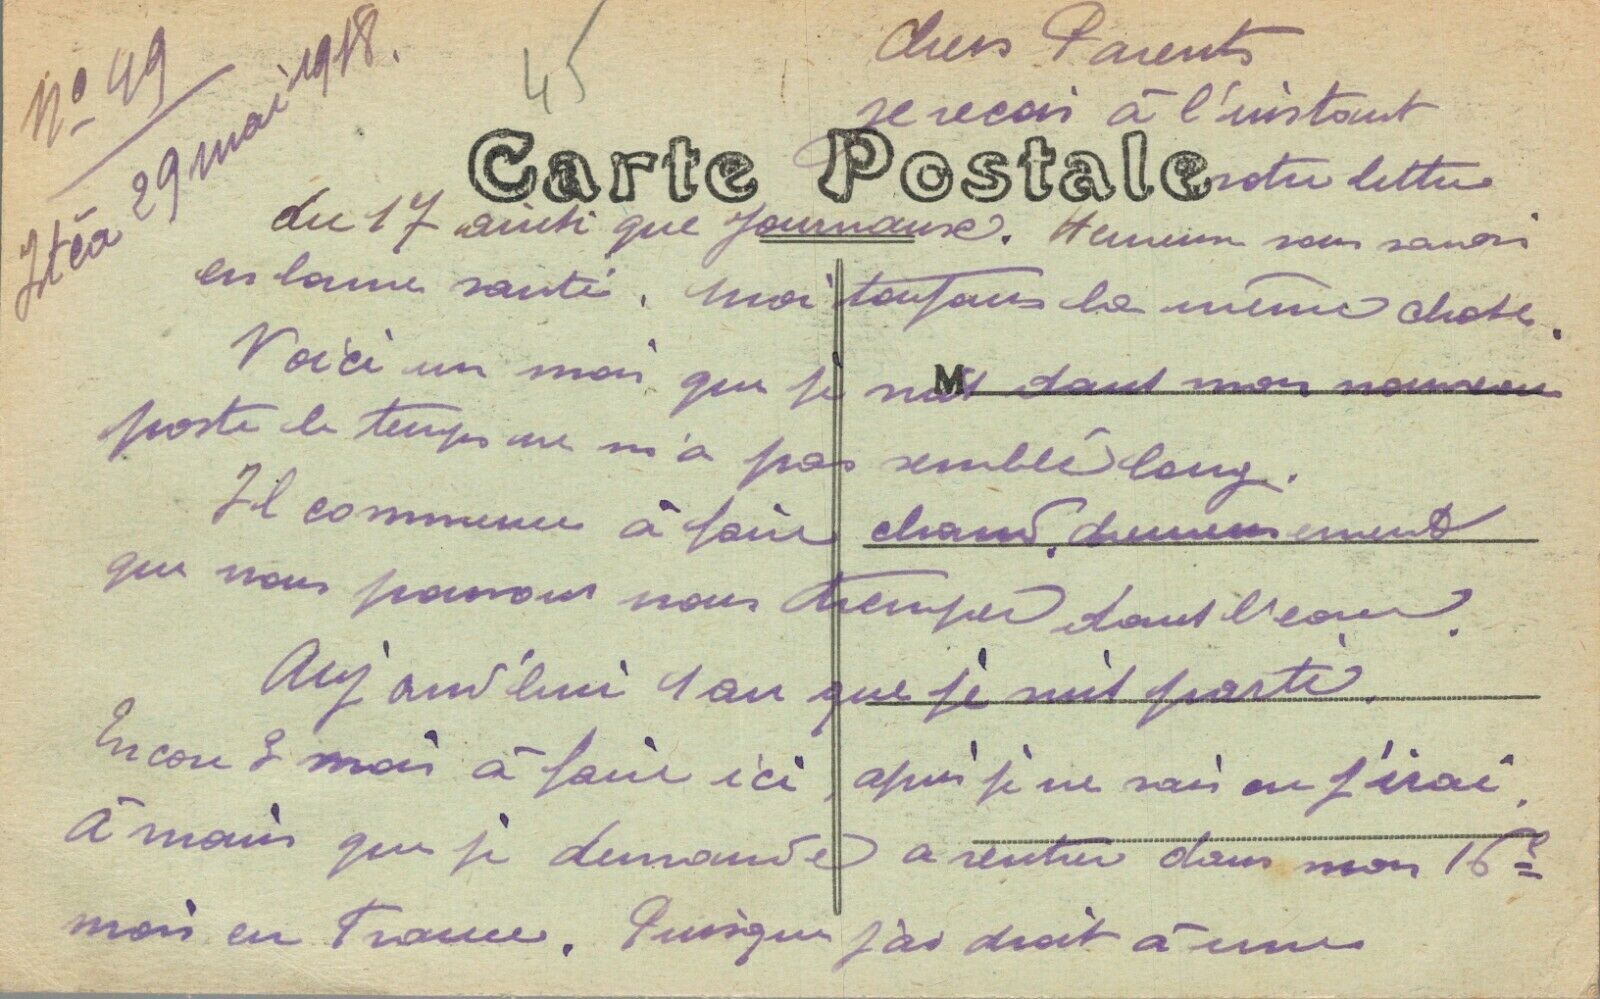 No 49
Itéa 29 mai 1918.
45
Chers Parents
Je recois à l'instant
Carte Postale
votre lettre
du 17 ainsi que Journaux. Heureux vous savoir
en bonne santé. Moi toujours la même chose.
Voici un mois que je suis dans mon nouveau
M
poste le temps ne m'a pas semblé long.
Il commence à faire chaud. heureusement
que nous pouvons nous tremper dans l'eau.
Aujourd'hui 1 an que je suis parti.
Encore 3 mois à faire ici, apres je ne sais ou j'irai,
à moins que je demande a rentrer dans mon 16e
mois en France. Puisque j'ai droit à une